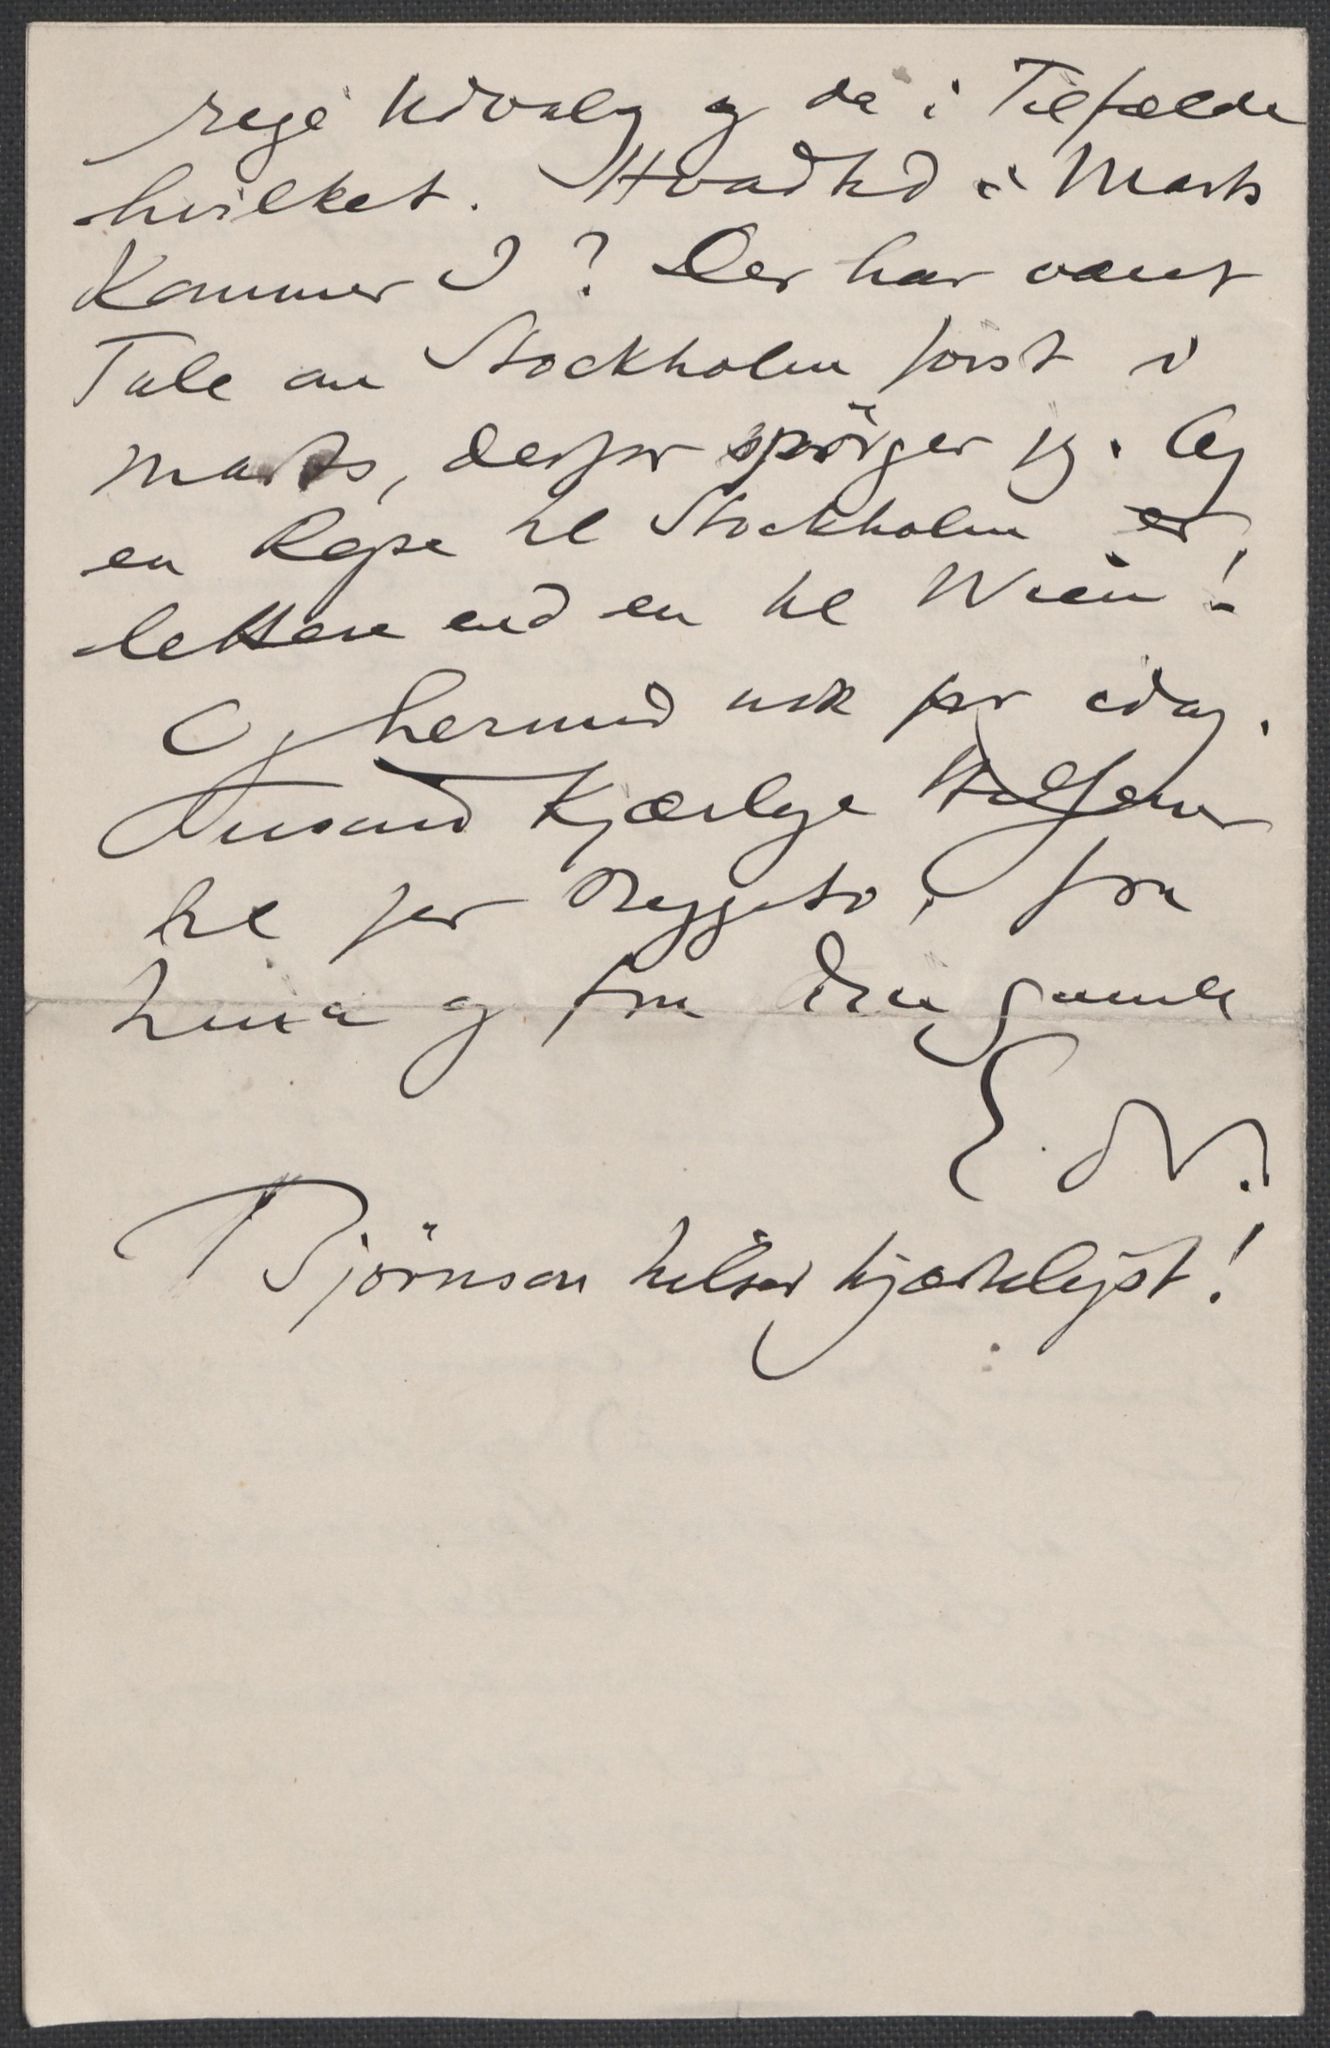 rige Udvalg og da i Tilfælde
hvilket. Hvad tid i Marts
kommer I? Der har været
Tale om Stockholm först i
Marts, derfor spörger jeg. Og
en Rejse til Stockholm er
lettere end en til Wien!
Og hermed nok for idag.
Tusend kjærlige Hilsener
til jer begge to, fra
Nina og fra Din gamle
E. G.
Björnson hilser hjerteligst!